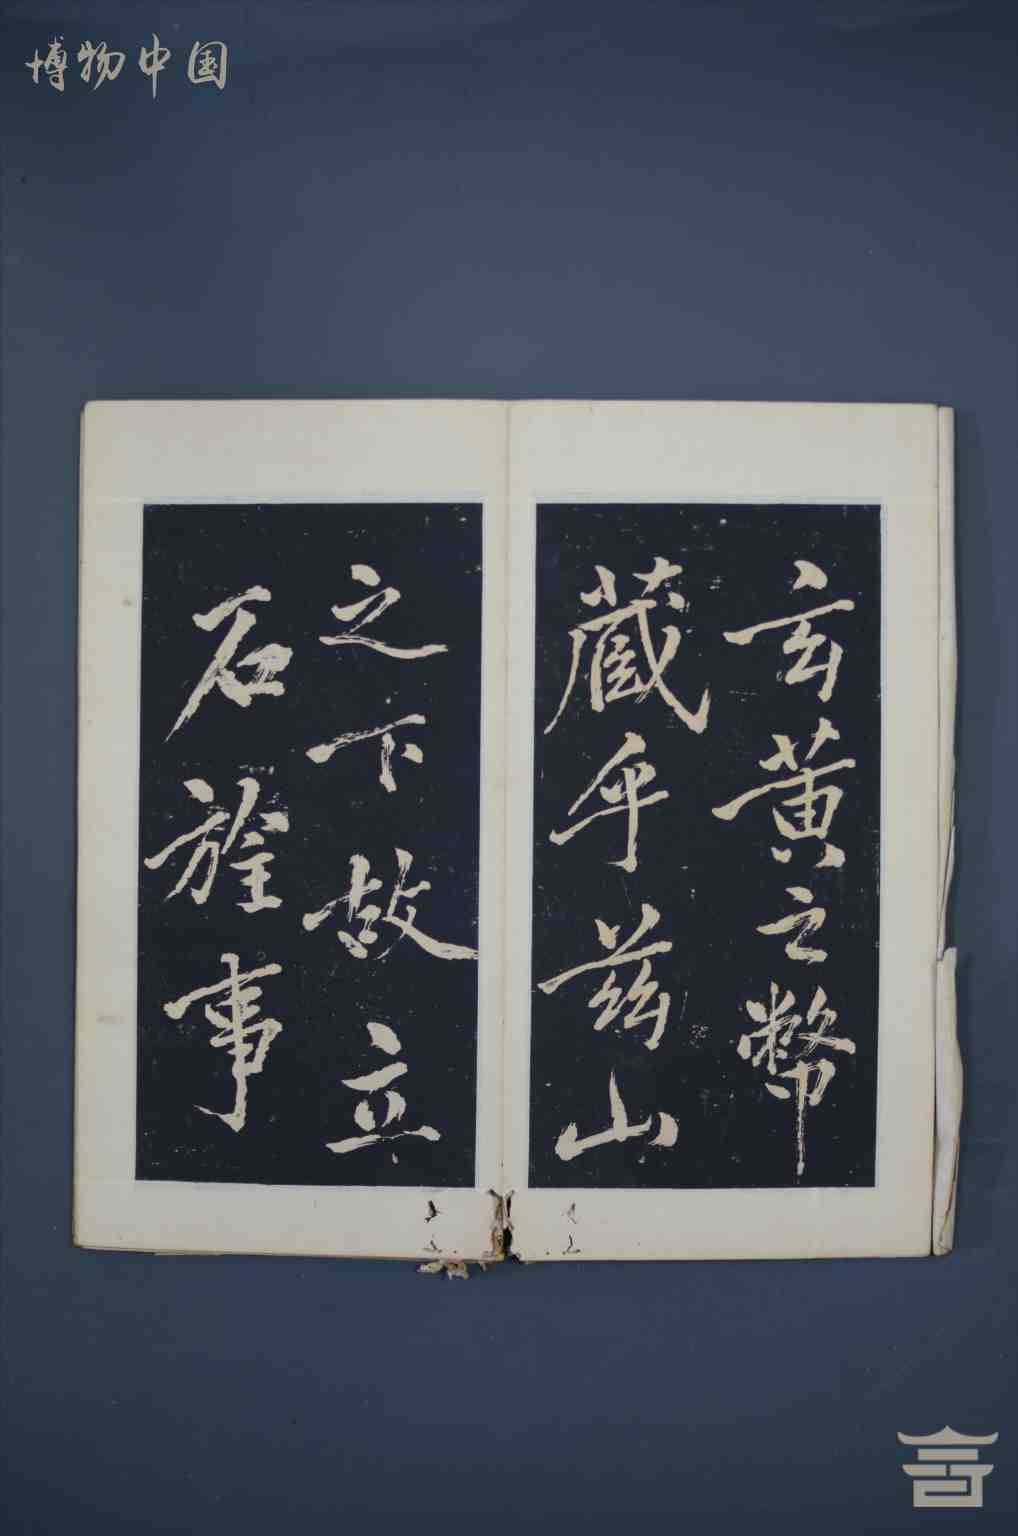 博物中国
玄黄之幣
藏乎茲山
之下故立
石旌事